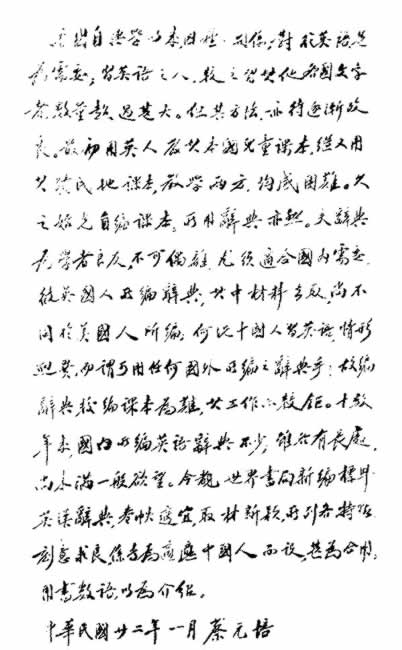 吾國自興學以來,因種種關係,對於英語尤
為需要;習英語之人,較之習其他各國文字
者,數量甚大。但其方法,亦待逐漸改
良。最初用英人教其本國兒童課本,繼又用
其殖民地課本,教學兩方,均感困難。久
之始克自編課本,所用辭典亦然。夫辭典
為學者良友,不可偶離,尤須適合國內需要.
彼英國人所編辭典,其中材料去取,尚不
同於美國人所編;何況中國人習英語,情形
迥異,而謂可用任何國外所編之辭典乎;故編
辭典較編課本為難,其工作亦較鉅。十數
年來國內所編英語辭典不少,雖各有長處,
尚未滿一般欲望。今觀世界書局新編標準
英漢辭典,卷帙適宜,取材新穎,所列各特點
刻意求良,係專為適應中國人而設,甚為合用,
用書數語,以為介紹。
中華民國廿二年一月蔡元培